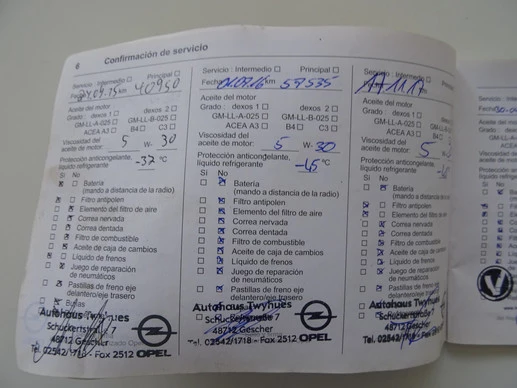 6 Confirmación de servicio
Servicio : Intermedio Principal
Fecha 24.09.15 km 40950
Aceite del motor
Grado : dexos 1 dexos 2
GM-LL-A-025 GM-LL-B-025
ACEA A3 B4 C3
Viscosidad del
aceite de motor: 5 W- 30
Protección anticongelante,
líquido refrigerante -32 °C
Sí No
Batería
(mando a distancia de la radio)
Filtro antipolen
Elemento del filtro de aire
Correa nervada
Correa dentada
Filtro de combustible
Aceite de caja de cambios
Líquido de frenos
Juego de reparación
de neumáticos
Pastillas de freno eje
delantero/eje trasero
Bujías
Autohaus Twyhues
Schuckertstraße 7
48712 Gescher
Tel. 02542/1718 - Fax 2512 OPEL
Servicio : Intermedio Principal
Fecha 01.09.16 km 59535
Aceite del motor
Grado : dexos 1 dexos 2
GM-LL-A-025 GM-LL-B-025
ACEA A3 B4 C3
Viscosidad del
aceite de motor: 5 W- 30
Protección anticongelante,
líquido refrigerante -45 °C
Sí No
Batería
(mando a distancia de la radio)
Filtro antipolen
Elemento del filtro de aire
Correa nervada
Correa dentada
Filtro de combustible
Aceite de caja de cambios
Líquido de frenos
Juego de reparación
de neumáticos
Pastillas de freno eje
delantero/eje trasero
Autohaus Twyhues
Schuckertstraße 7
48712 Gescher
Tel. 02542/1718 - Fax 2512 OPEL
Servicio : Intermedio
Fecha
Aceite del motor
Grado : dexos 1
GM-LL-A-025
ACEA A3
Viscosidad del
aceite de motor: 5
Protección anticongelante,
líquido refrigerante
Sí No
Batería
(mando a distancia
Filtro antipolen
Elemento del filtro
Correa nervada
Correa dentada
Filtro de combustible
Aceite de caja de
Líquido de frenos
Juego de reparación
de neumáticos
Pastillas de freno
delantero/eje trasero
Autohaus Twyhues
Schuckertstraße 7
48712 Gescher
Tel. 02542/1718 - Fax 2512